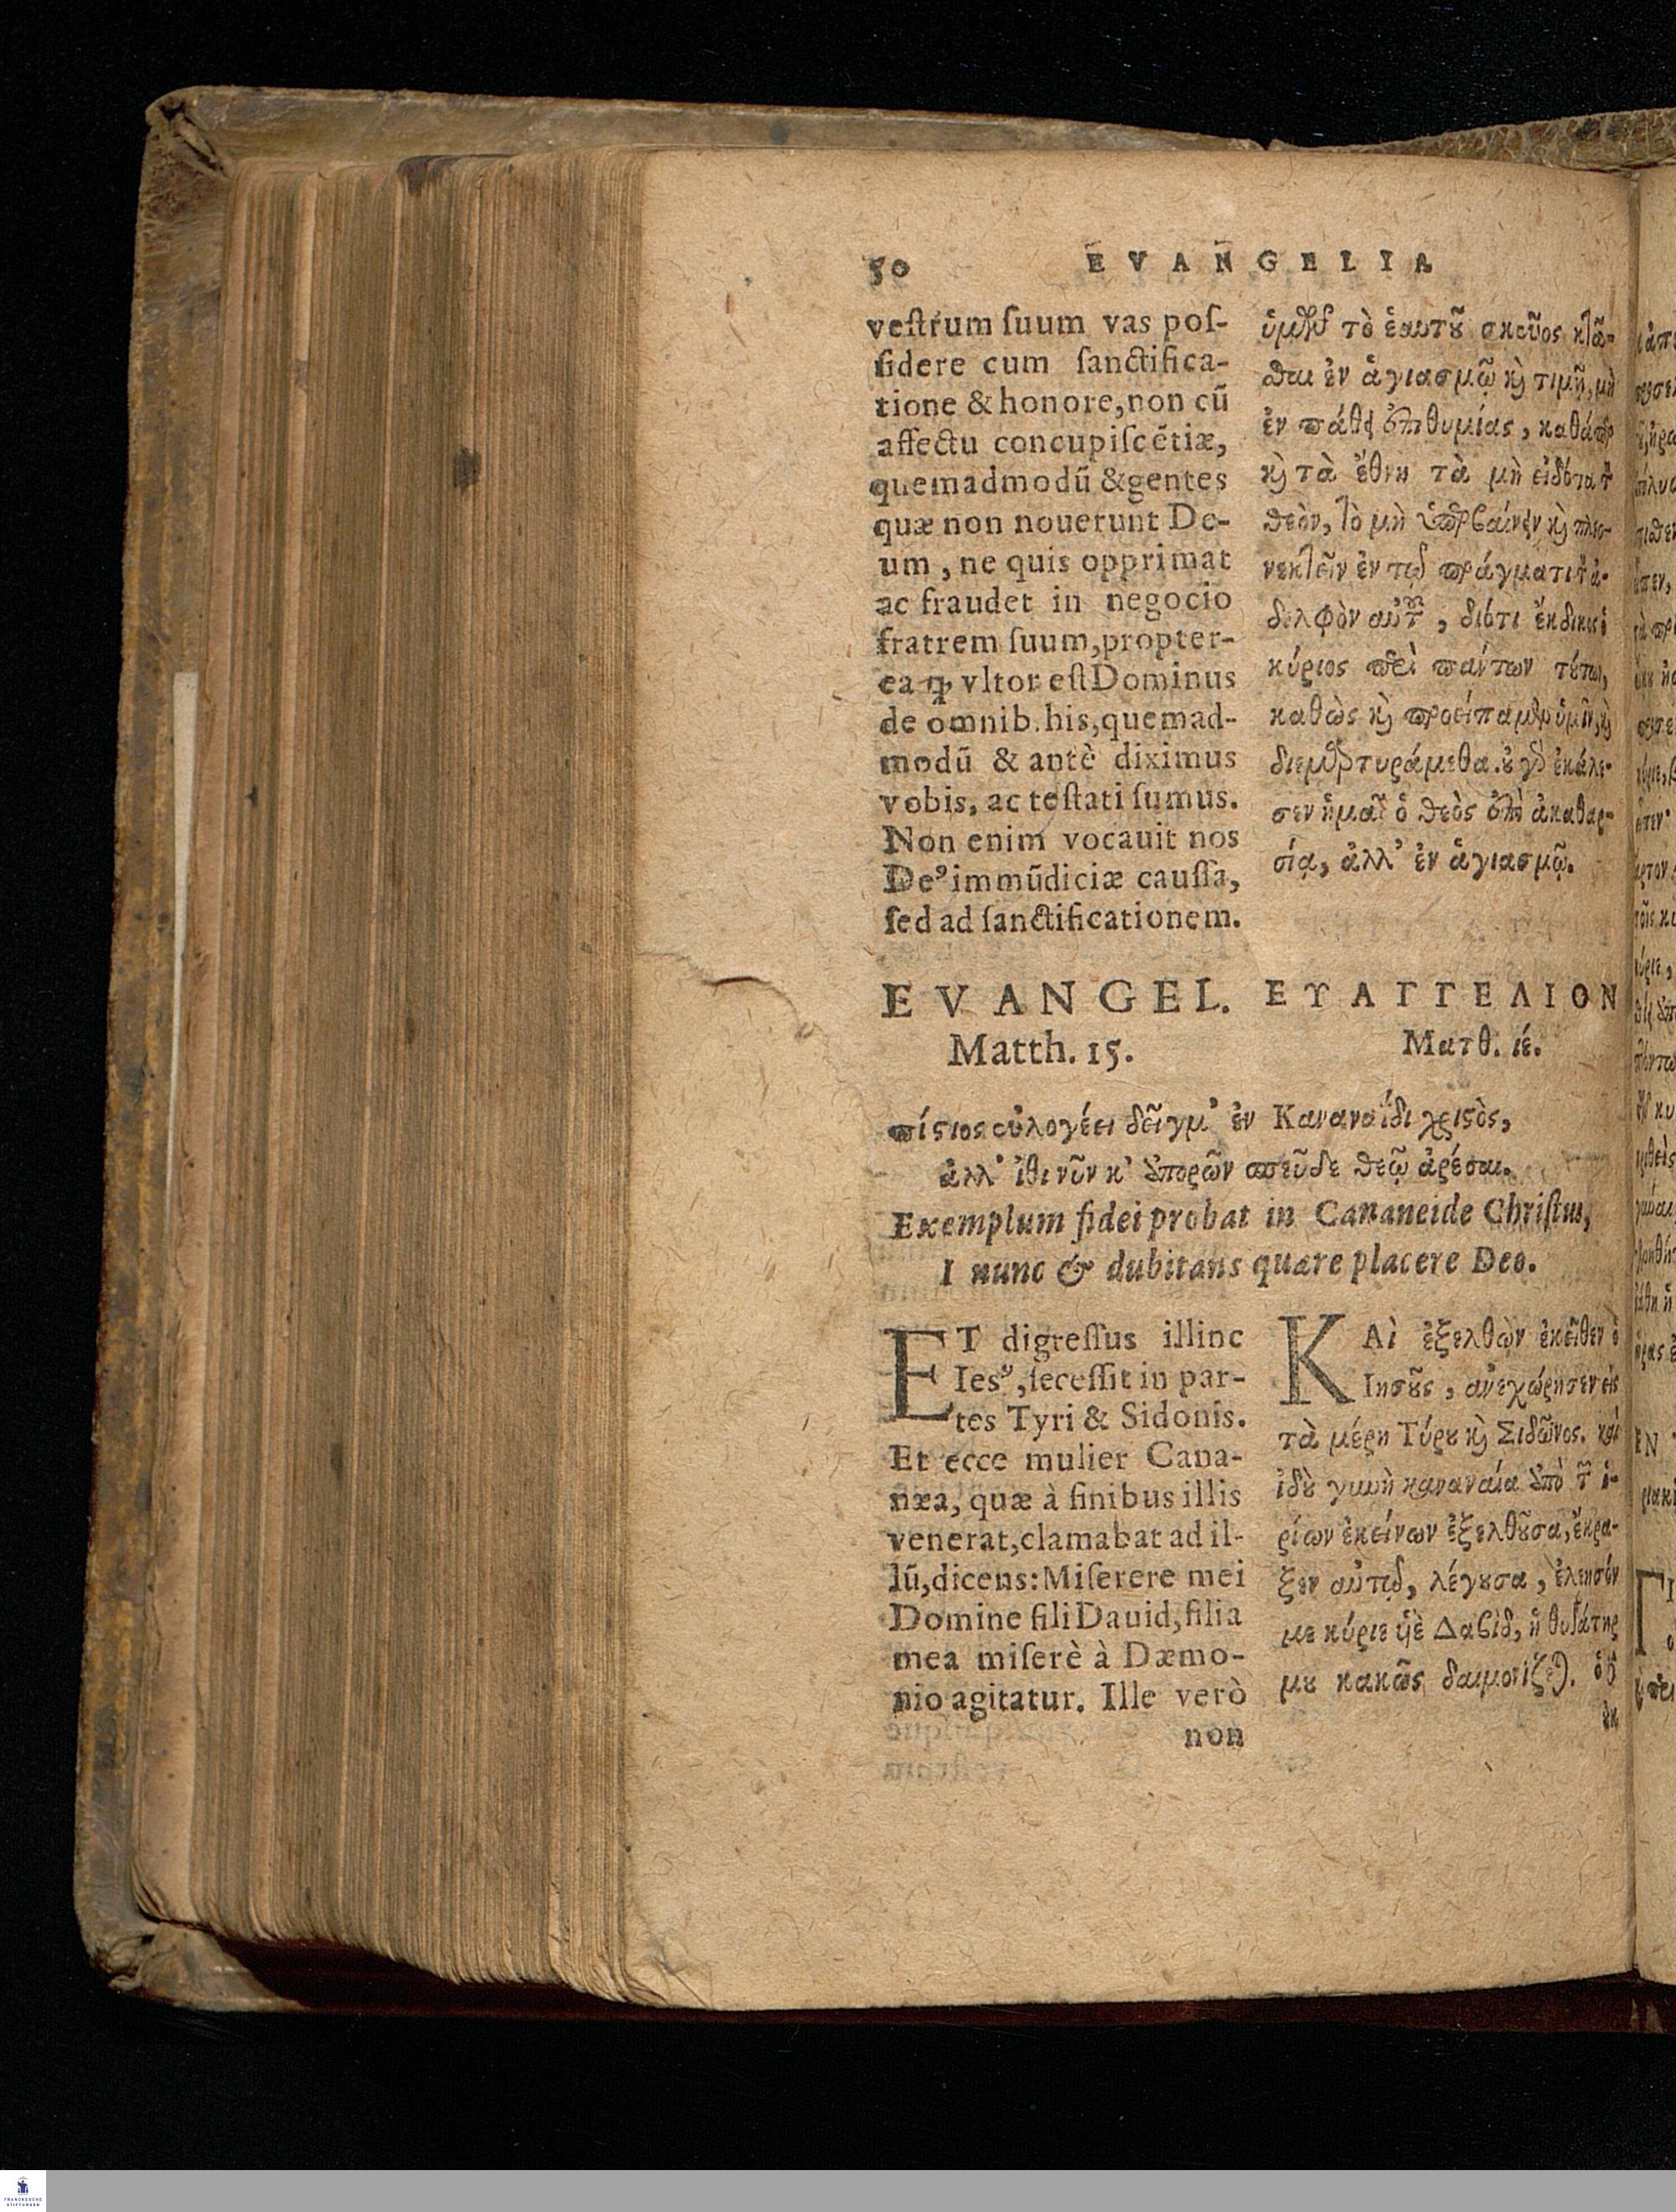 50 EVANGELIA
veſtrum ſuum vas poſ-
ſidere cum ſanctifica-
tione & honore, non cū
affectu concupiſcētiæ,
quemadmodū & gentes
quæ non nouerunt De-
um, ne quis opprimat
ac fraudet in negocio
fratrem ſuum, propter-
ea ꝙ vltor eſt Dominus
de omnib. his, quemad-
modū & antè diximus
vobis, ac teſtati ſumus.
Non enim vocauit nos
Deꝰ immūdiciæ cauſſa,
ſed ad ſanctificationem.
ὑμῶν τὸ ἑαυτȣ͂ σκεῦος κτᾶ-
ϑαι ἐν ἁγιασμῷ ϗ τιμῇ, μὴ
ἐν πάθει ἐπιθυμίας, καθάπερ
ϗ τὰ ἔθνη τὰ μὴ εἰδότα τ̀
ϑεὸν, τὸ μὴ ὑπερβαίνειν ϗ πλεο-
νεκτεῖν ἐν τῷ πράγματι τ̀ ἀ-
δελφὸν αὐτȣ͂, διότι ἔκδικος ὁ
κύριος περὶ πάντων τȣ́των,
καθὼς ϗ προείπαμεν ὑμῖν, ϗ
διεμαρτυράμεθα. ȣ̓ γὸ ἐκάλε-
σεν ἡμᾶς ὁ ϑεὸς ἐπὶ ἀκαθαρ-
σίᾳ, ἀλλ' ἐν ἁγιασμῷ.
EVANGEL.
Matth. 15.
ΕΥΑΓΓΕΛΙΟΝ
Ματθ. ιέ.
πίϛιος εὐλογέει δεῖγμ' ἐν Καναναΐδι χριϛὸς,
ἀλλ' ἴθι νῦν κ' ἀπορῶν σπεῦδε ϑεῷ ἀρέσαι.
Exemplum fidei probat in Cananeide Chriſtus,
I nunc & dubitans quære placere Deo.
ET digreſſus illinc
Ieſꝰ, ſeceſſit in par-
tes Tyri & Sidonis.
Et ecce mulier Cana-
næa, quæ à finibus illis
venerat, clamabat ad il-
lū, dicens: Miſerere mei
Domine fili Dauid, filia
mea miſerè à Dæmo-
nio agitatur. Ille verò
non
ΚΑὶ ἐξελθὼν ἐκεῖθεν ὁ
Ιησȣ͂ς, ἀνεχώρησεν εἰς
τὰ μέρη Τύρȣ ϗ Σιδῶνος. καὶ
ἰδȣ̀ γυνὴ καναναία ἀπὸ τ͂ ὁ-
ρίων ἐκείνων ἐξελθȣ͂σα, ἔκρα-
ξεν αὐτῷ, λέγȣσα, ἐλεησόν
με κύριε ὑιὲ Δαβὶδ, ἡ θυγάτηρ
μȣ κακῶς δαιμονίζεται. ὁ δὲ
ȣ̓κ
FRANCKESCHE
STIFTUNGEN